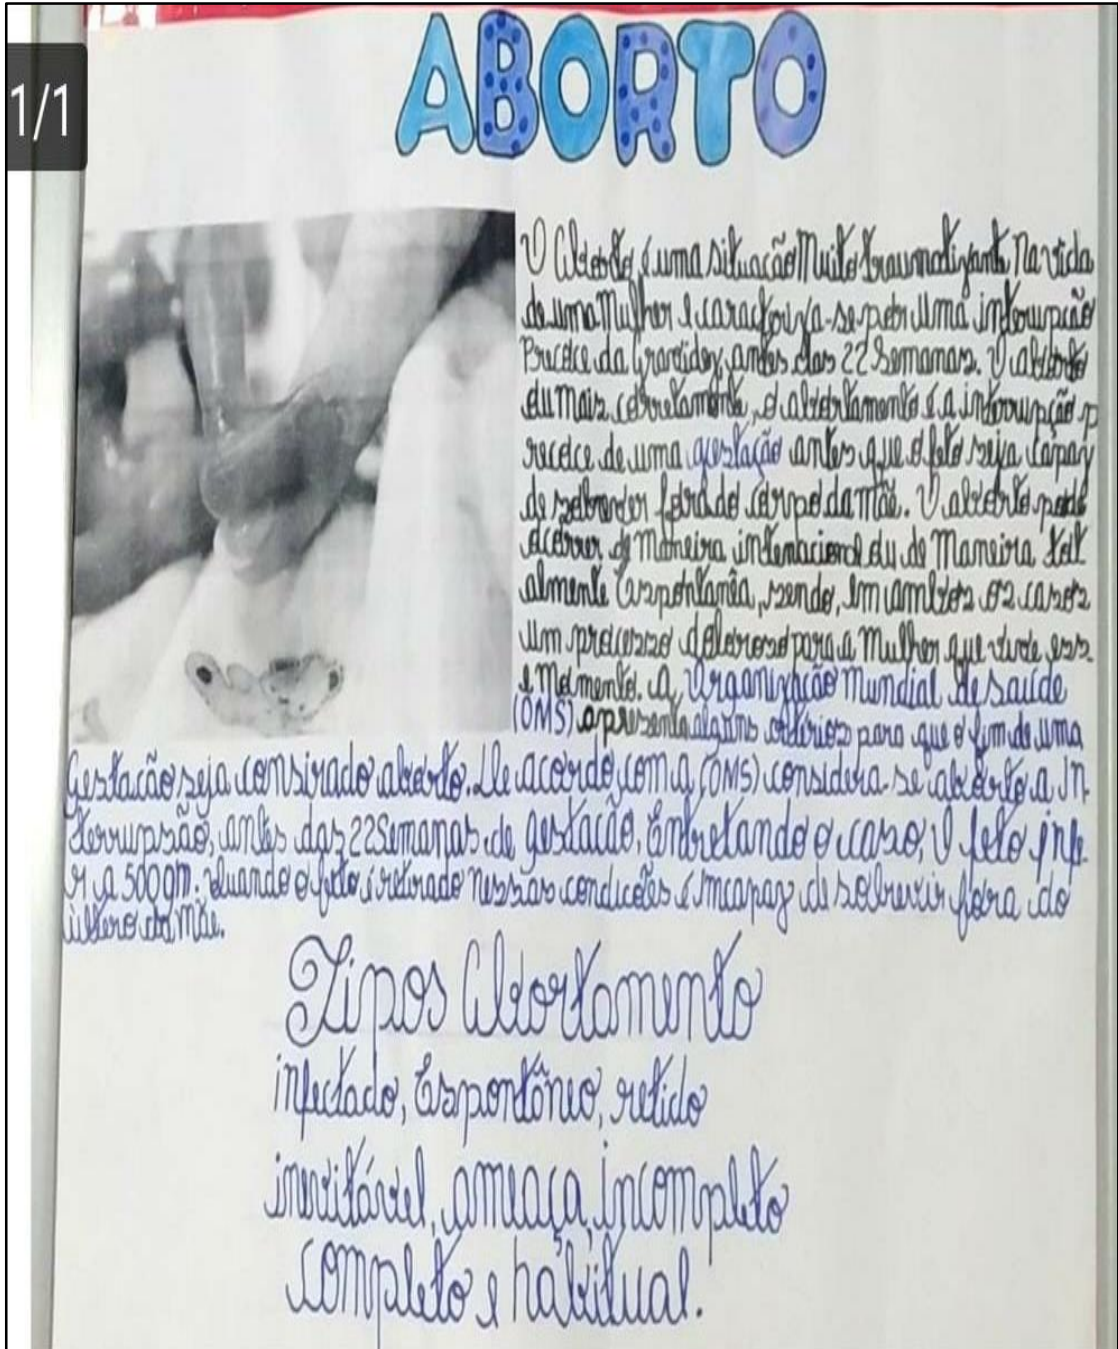 ABORTO
1/1
O Aborto é uma situação Muito traumatizante Na vida
de uma Mulher e caracteriza-se por uma interrupção
Precoce da Gravidez, antes das 22 Semanas. O aborto
ou mais corretamente, o abortamento é a interrupção p
recoce de uma gestação antes que o feto seja capaz
de fora do corpo da mãe. O aborto pode
ocorrer de Maneira intenacional ou de Maneira
almente Espontânia, sendo, em ambos os casos
um processo doloroso para a Mulher que vive ess
e Momento. A Organização Mundial de saúde
(OMS) apresenta alguns critérios para que o fim de uma
gestação seja consirado aborto. De acordo com a (OMS) considera-se aborto a In-
terrupsão, antes das 22 Semanas de gestação, Entretando o caso, O feto infe-
r a 500gm. Quando o feto é retirado nessas condições é incapaz de fora do
útero da mãe.
Tipos Abortamento
infectado, Espontâneo, retido
inevitável, ameaça, incompleto
completo e habitual.